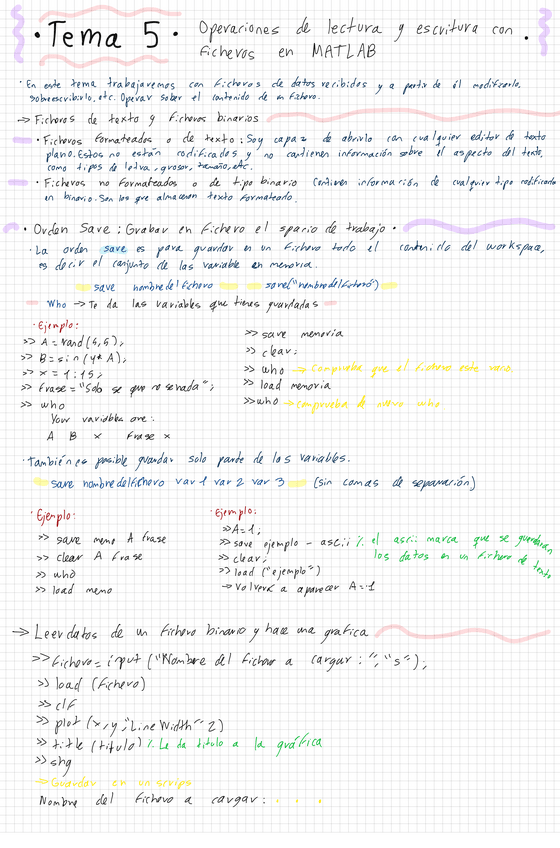 • Tema 5 • Operaciones de lectura y escritura con
ficheros en MATLAB
• En este tema trabajaremos con ficheros de datos recibidos y a partir de él modificarlo,
sobreescribirlo, etc. Operar sober el contenido de un fichero.
→ Ficheros de texto y ficheros binarios
• Ficheros formateados o de texto: Soy capaz de abrirlo con cualquier editor de texto
plano. Estos no están codificados y no contienen información sobre el aspecto del texto,
como tipos de letra, grosor, tamaño, etc.
• Ficheros no formateados o de tipo binario contienen información de cualquier tipo codificada
en binario. Son los que almacenan texto formateado.
• Orden Save: Grabar en fichero el spacio de trabajo •
• La orden save es para guardar en un fichero todo el contenido del workspace,
es decir el conjunto de las variable en memoria.
save nombredelfichero save("nombredelfichero")
Who → Te da las variables que tienes guardadas
• Ejemplo:
>> A = rand(5,5);
>> B = sin(4*A);
>> x = 1:15;
>> frase = "Solo se que no se nada";
>> who
Your variables are:
A B x frase x
>> save memoria
>> clear;
>> who → Comprueba que el fichero este vacio
>> load memoria
>> who → comprueba de nuevo who
• También es posible guardar solo parte de las variables.
save nombredelfichero var 1 var 2 var 3 (sin comas de separación)
• Ejemplo:
>> save memo A frase
>> clear A frase
>> who
>> load memo
• Ejemplo:
>> A=1;
>> save ejemplo -ascii % el ascii marca que se guardaran
los datos en un fichero de texto
>> clear;
>> load ("ejemplo")
→ Volverá a aparecer A=1
→ Leer datos de un fichero binario y hace una grafica
>> fichero = input ("Nombre del fichero a cargar: ", "s");
>> load (fichero)
>> clf
>> plot (x, y, "LineWidth" 2)
>> title (titulo) % Le da titulo a la gráfica
>> shg
→ Guardar en un scrips
Nombre del fichero a cargar: . . .